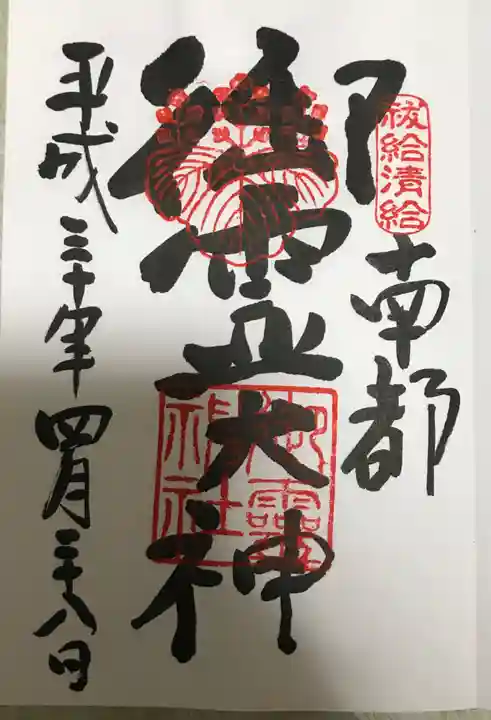 祓給清給
南都
御霊大神
御靈
神社
平成三十年四月二十八日